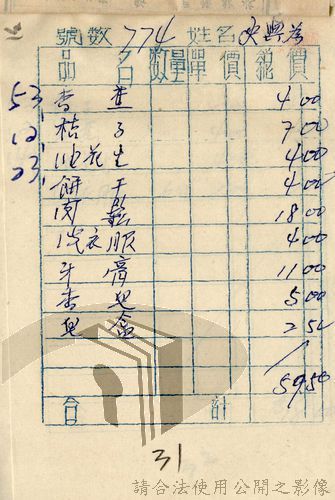 號數 774 姓名 史與為
品名 數量 單價 總價
53, 杏
12, 桔子 7 00
23, 油花生 4 00
餅干 4 00
肉鬆 18 00
洗衣服 4 00
牙膏 11 00
5 00
2 50
59.50
合 計
31
請合法使用公開之影像